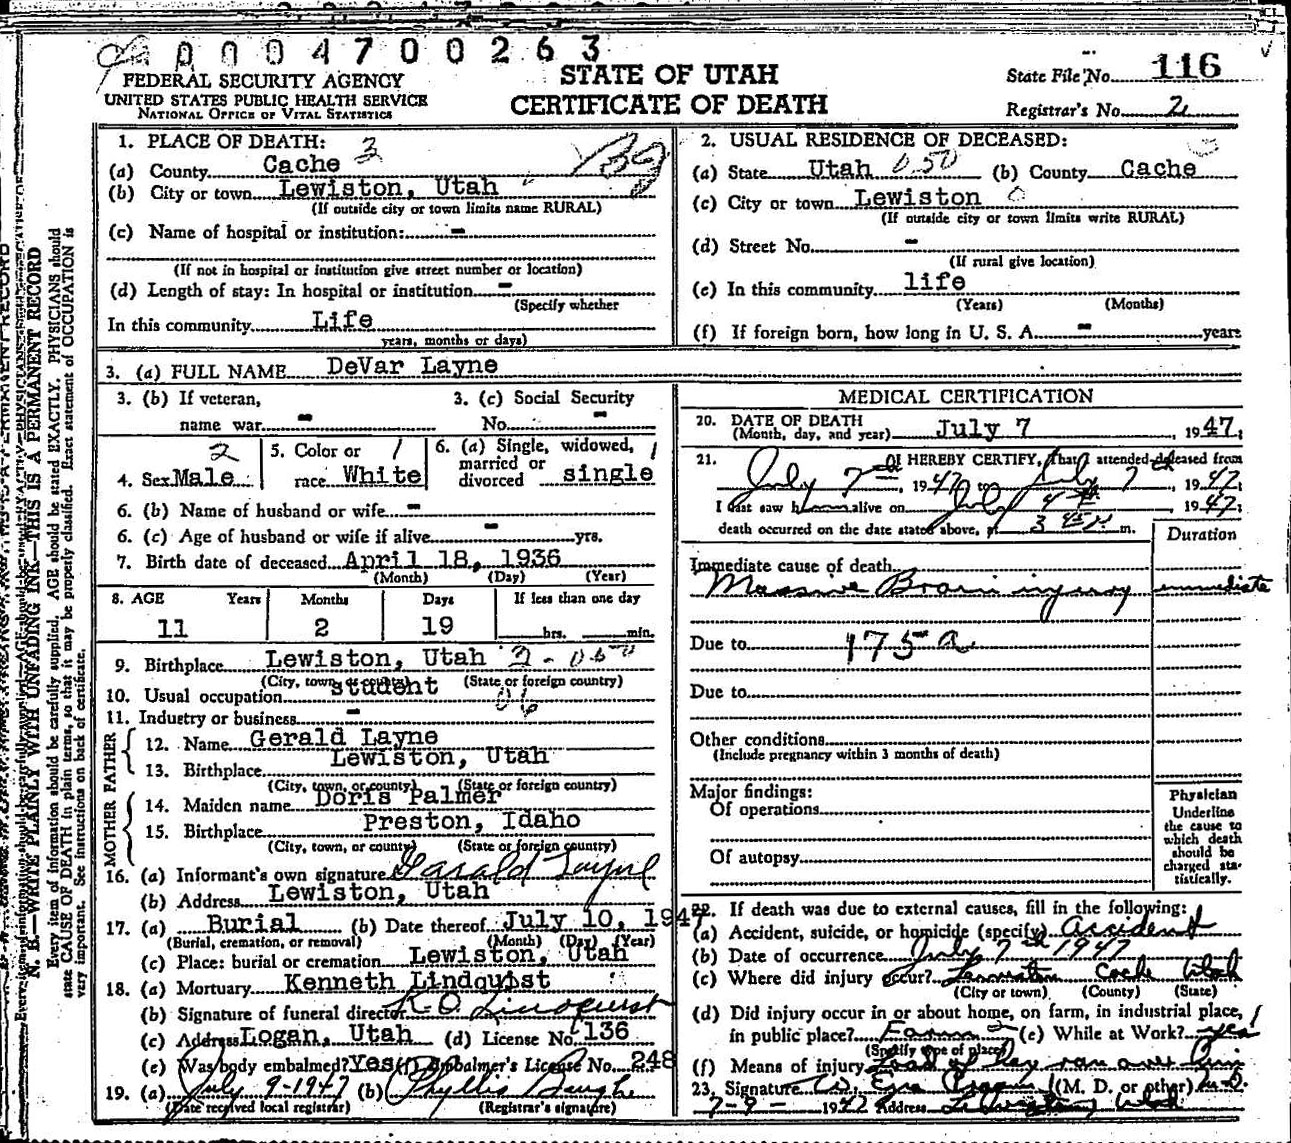 0004700263
FEDERAL SECURITY AGENCY
UNITED STATES PUBLIC HEALTH SERVICE
NATIONAL OFFICE OF VITAL STATISTICS
STATE OF UTAH
CERTIFICATE OF DEATH
State File No. 116
Registrar's No. 2
1. PLACE OF DEATH:
(a) County Cache 3
(b) City or town Lewiston, Utah
(If outside city or town limits name RURAL)
(c) Name of hospital or institution: -
(If not in hospital or institution give street number or location)
(d) Length of stay: In hospital or institution -
(Specify whether
In this community Life
years, months or days)
2. USUAL RESIDENCE OF DECEASED:
(a) State Utah 050 (b) County Cache
(c) City or town Lewiston 0
(If outside city or town limits write RURAL)
(d) Street No. -
(If rural give location)
(e) In this community life
(Years) (Months)
(f) If foreign born, how long in U. S. A. - years
3. (a) FULL NAME DeVar Layne
3. (b) If veteran,
name war -
3. (c) Social Security
No. -
4. Sex Male 2
5. Color or
race White 1
6. (a) Single, widowed,
married or
divorced single 1
6. (b) Name of husband or wife -
6. (c) Age of husband or wife if alive - yrs.
7. Birth date of deceased April 18, 1936
(Month) (Day) (Year)
8. AGE Years Months Days If less than one day
11 2 19 hrs. min.
9. Birthplace Lewiston, Utah 2-050
(City, town, or county) (State or foreign country)
10. Usual occupation student 06
11. Industry or business -
FATHER
12. Name Gerald Layne
13. Birthplace Lewiston, Utah
(City, town, or county) (State or foreign country)
MOTHER
14. Maiden name Doris Palmer
15. Birthplace Preston, Idaho
(City, town, or county) (State or foreign country)
16. (a) Informant's own signature Garald Layne
(b) Address Lewiston, Utah
17. (a) Burial (b) Date thereof July 10, 1947
(Burial, cremation, or removal) (Month) (Day) (Year)
(c) Place: burial or cremation Lewiston, Utah
18. (a) Mortuary Kenneth Lindquist
(b) Signature of funeral director K. O. Lindquist
(c) Address Logan, Utah (d) License No. 136
(e) Was body embalmed? Yes (f) Embalmer's License No. 248
19. (a) July 9-1947 (b) Phyllis
(Date received local registrar) (Registrar's signature)
MEDICAL CERTIFICATION
20. DATE OF DEATH
(Month, day, and year) July 7, 1947;
21. I HEREBY CERTIFY, That I attended deceased from
July 7th, 1947 to July 7th, 1947
I last saw him alive on July 4th, 1947;
death occurred on the date stated above, at 3 45 P. m.
Duration
Immediate cause of death
Massive Brain injury immediate
Due to 175 a
Due to
Other conditions
(Include pregnancy within 3 months of death)
Major findings:
Of operations
Of autopsy
Physician
Underline
the cause to
which death
should be
charged sta-
tistically.
22. If death was due to external causes, fill in the following:
(a) Accident, suicide, or homicide (specify) Accident
(b) Date of occurrence July 7th 1947
(c) Where did injury occur? Lewiston Cache Utah
(City or town) (County) (State)
(d) Did injury occur in or about home, on farm, in industrial place,
in public place? Farm 2 (e) While at Work? yes 1
(Specify type of place)
(f) Means of injury Load of Hay ran over him
23. Signature W. Ezra (M. D. or other) M.D.
7-9- 1947 Address Lewiston Utah
N. B.—WRITE PLAINLY WITH UNFADING INK—THIS IS A PERMANENT RECORD
Every item of information should be carefully supplied. AGE should be stated EXACTLY. PHYSICIANS should
state CAUSE OF DEATH in plain terms, so that it may be properly classified. Exact statement of OCCUPATION is
very important. See instructions on back of certificate.